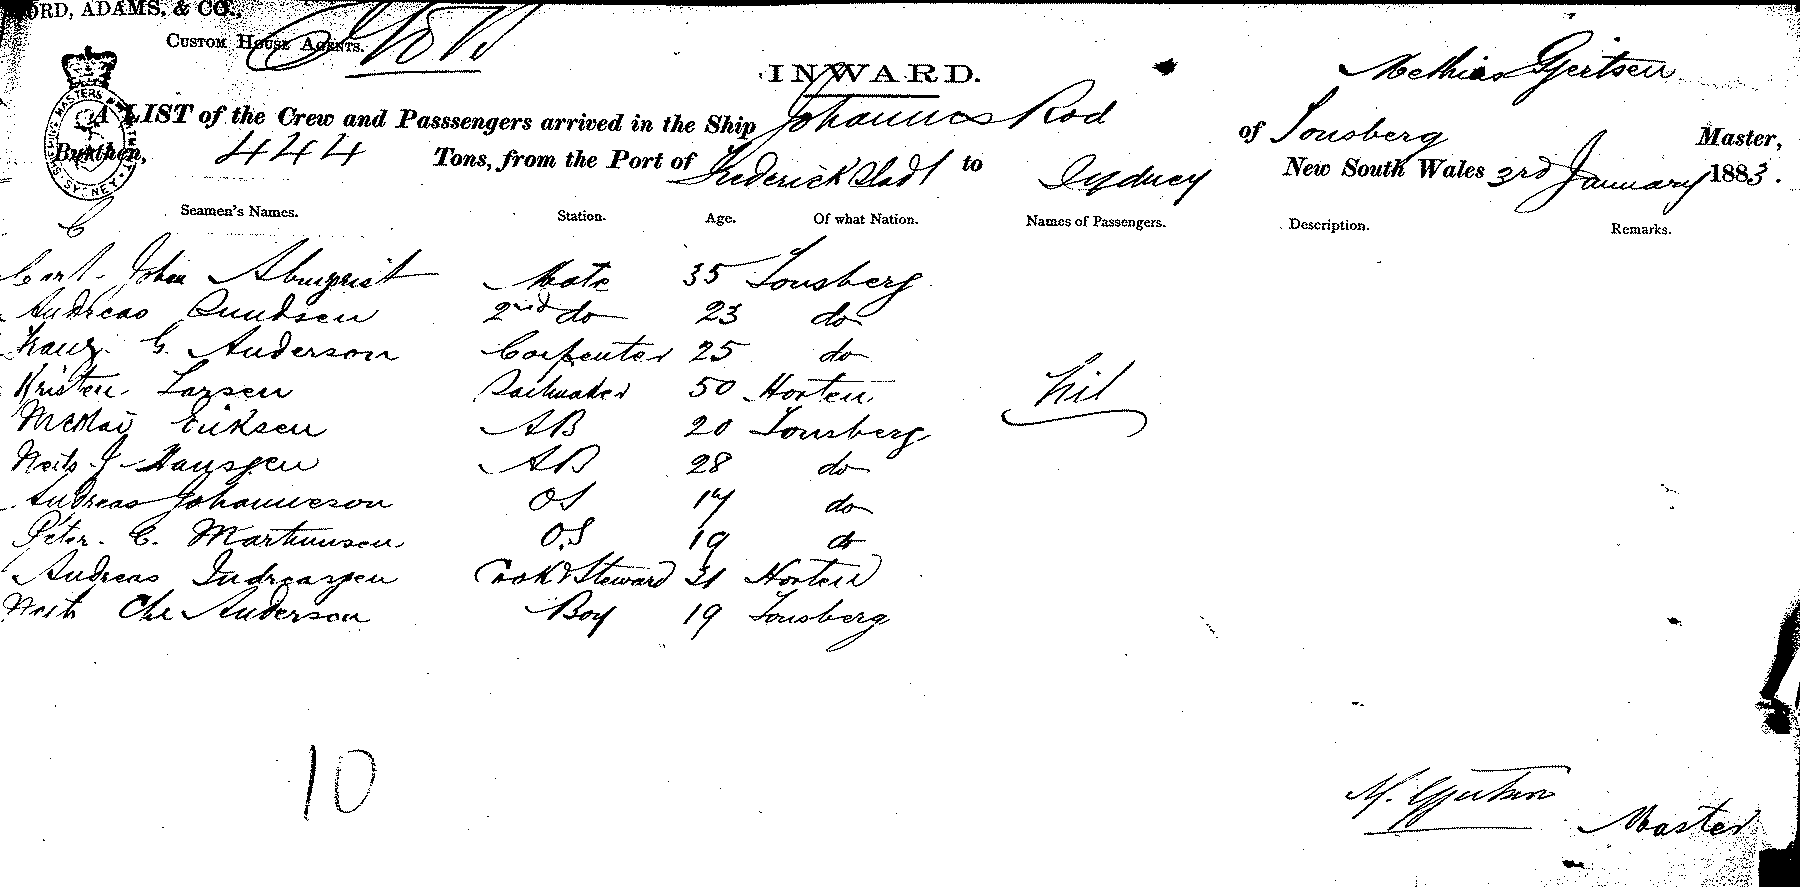 ORD, ADAMS, & CO.,
CUSTOM HOUSE AGENTS.
INWARD.
Methias Gjertsen
A LIST of the Crew and Passsengers arrived in the Ship Johannes Rod of Tonsberg Master,
Burthen, 444 Tons, from the Port of Frederickstadt to Sydney New South Wales 3rd January 1883.
Seamen's Names. Station. Age. Of what Nation. Names of Passengers. Description. Remarks.
Carl John Almqvist Mate 35 Tonsberg
Andreas 2nd do 23 do
G. Anderson Carpenter 25 do
Kristen Larsen Sailmaker 50 Horten Nil
Eriksen AB 20 Tonsberg
Neils J Hansen AB 28 do
Andreas Johanneson OS 17 do
Peter C. Marthinsen O.S 19 do
Andreas Andreassen Cook & Steward 31 Horten
Neils Chr Anderson Boy 19 Tonsberg
10
M. Gjertsen
Master